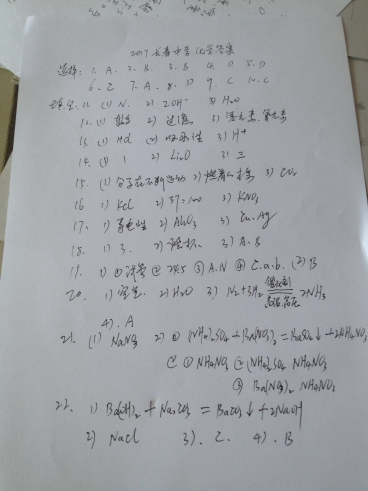 2017长春中考化学答案
选择: 1. A. 2. B. 3. B 4. D 5. D
6. C 7. A. 8. D 9. C 10. C
填空: 11. (1) N. 2) 2OH⁻ 3) H₂O
12. (1) 2) 过滤 3)
13. (1) HCl 2) 吸水性 3) H⁺
14. (1) 1 2) Li₂O 3) 三
15. (1) 分子在不断运动 2) 3) CO₂
16. 1) KCl 2) 37:100 3) KNO₃
17. 1) 导电性 2) Al₂O₃ 3) Cu. Ag
18. 1) 3. 2) 烧杯 3) A. B
19. 1) ① 试管 ② 245 ③ A. N ④ C. a. b. (2) B
20. 1) 2) H₂O 3) N₂+3H₂ 催化剂 高温、高压 2NH₃
4). A
21. (1) NaNO₃ 2) ① (NH₄)₂SO₄ + Ba(NO₃)₂ = BaSO₄↓ + 2NH₄NO₃
① NH₄NO₃ ② (NH₄)₂SO₄ NH₄NO₃
③ Ba(NO₃)₂ NH₄NO₃
22. 1) Ba(OH)₂ + Na₂CO₃ = BaCO₃↓ + 2NaOH
2) NaCl 3). C. 4). B